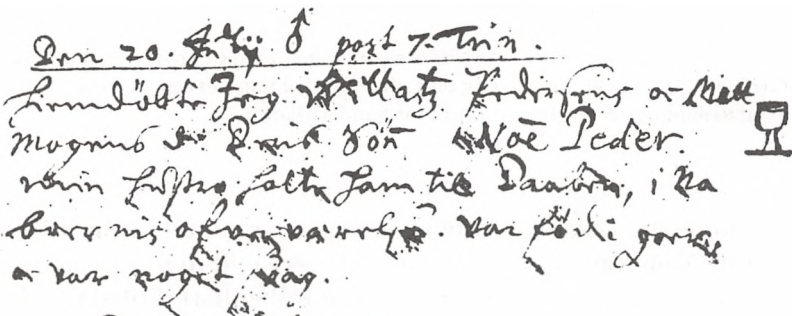 Den 20. Julij ♂ post 7. Trin.
hiemdöbte Jeg Matz Pedersens oc Mett
Mogens d: Deris Sön Noë Peder.
min hustro holte ham til Daaben, i Na
boernis ofverværelse. var födt
oc var noget svag.